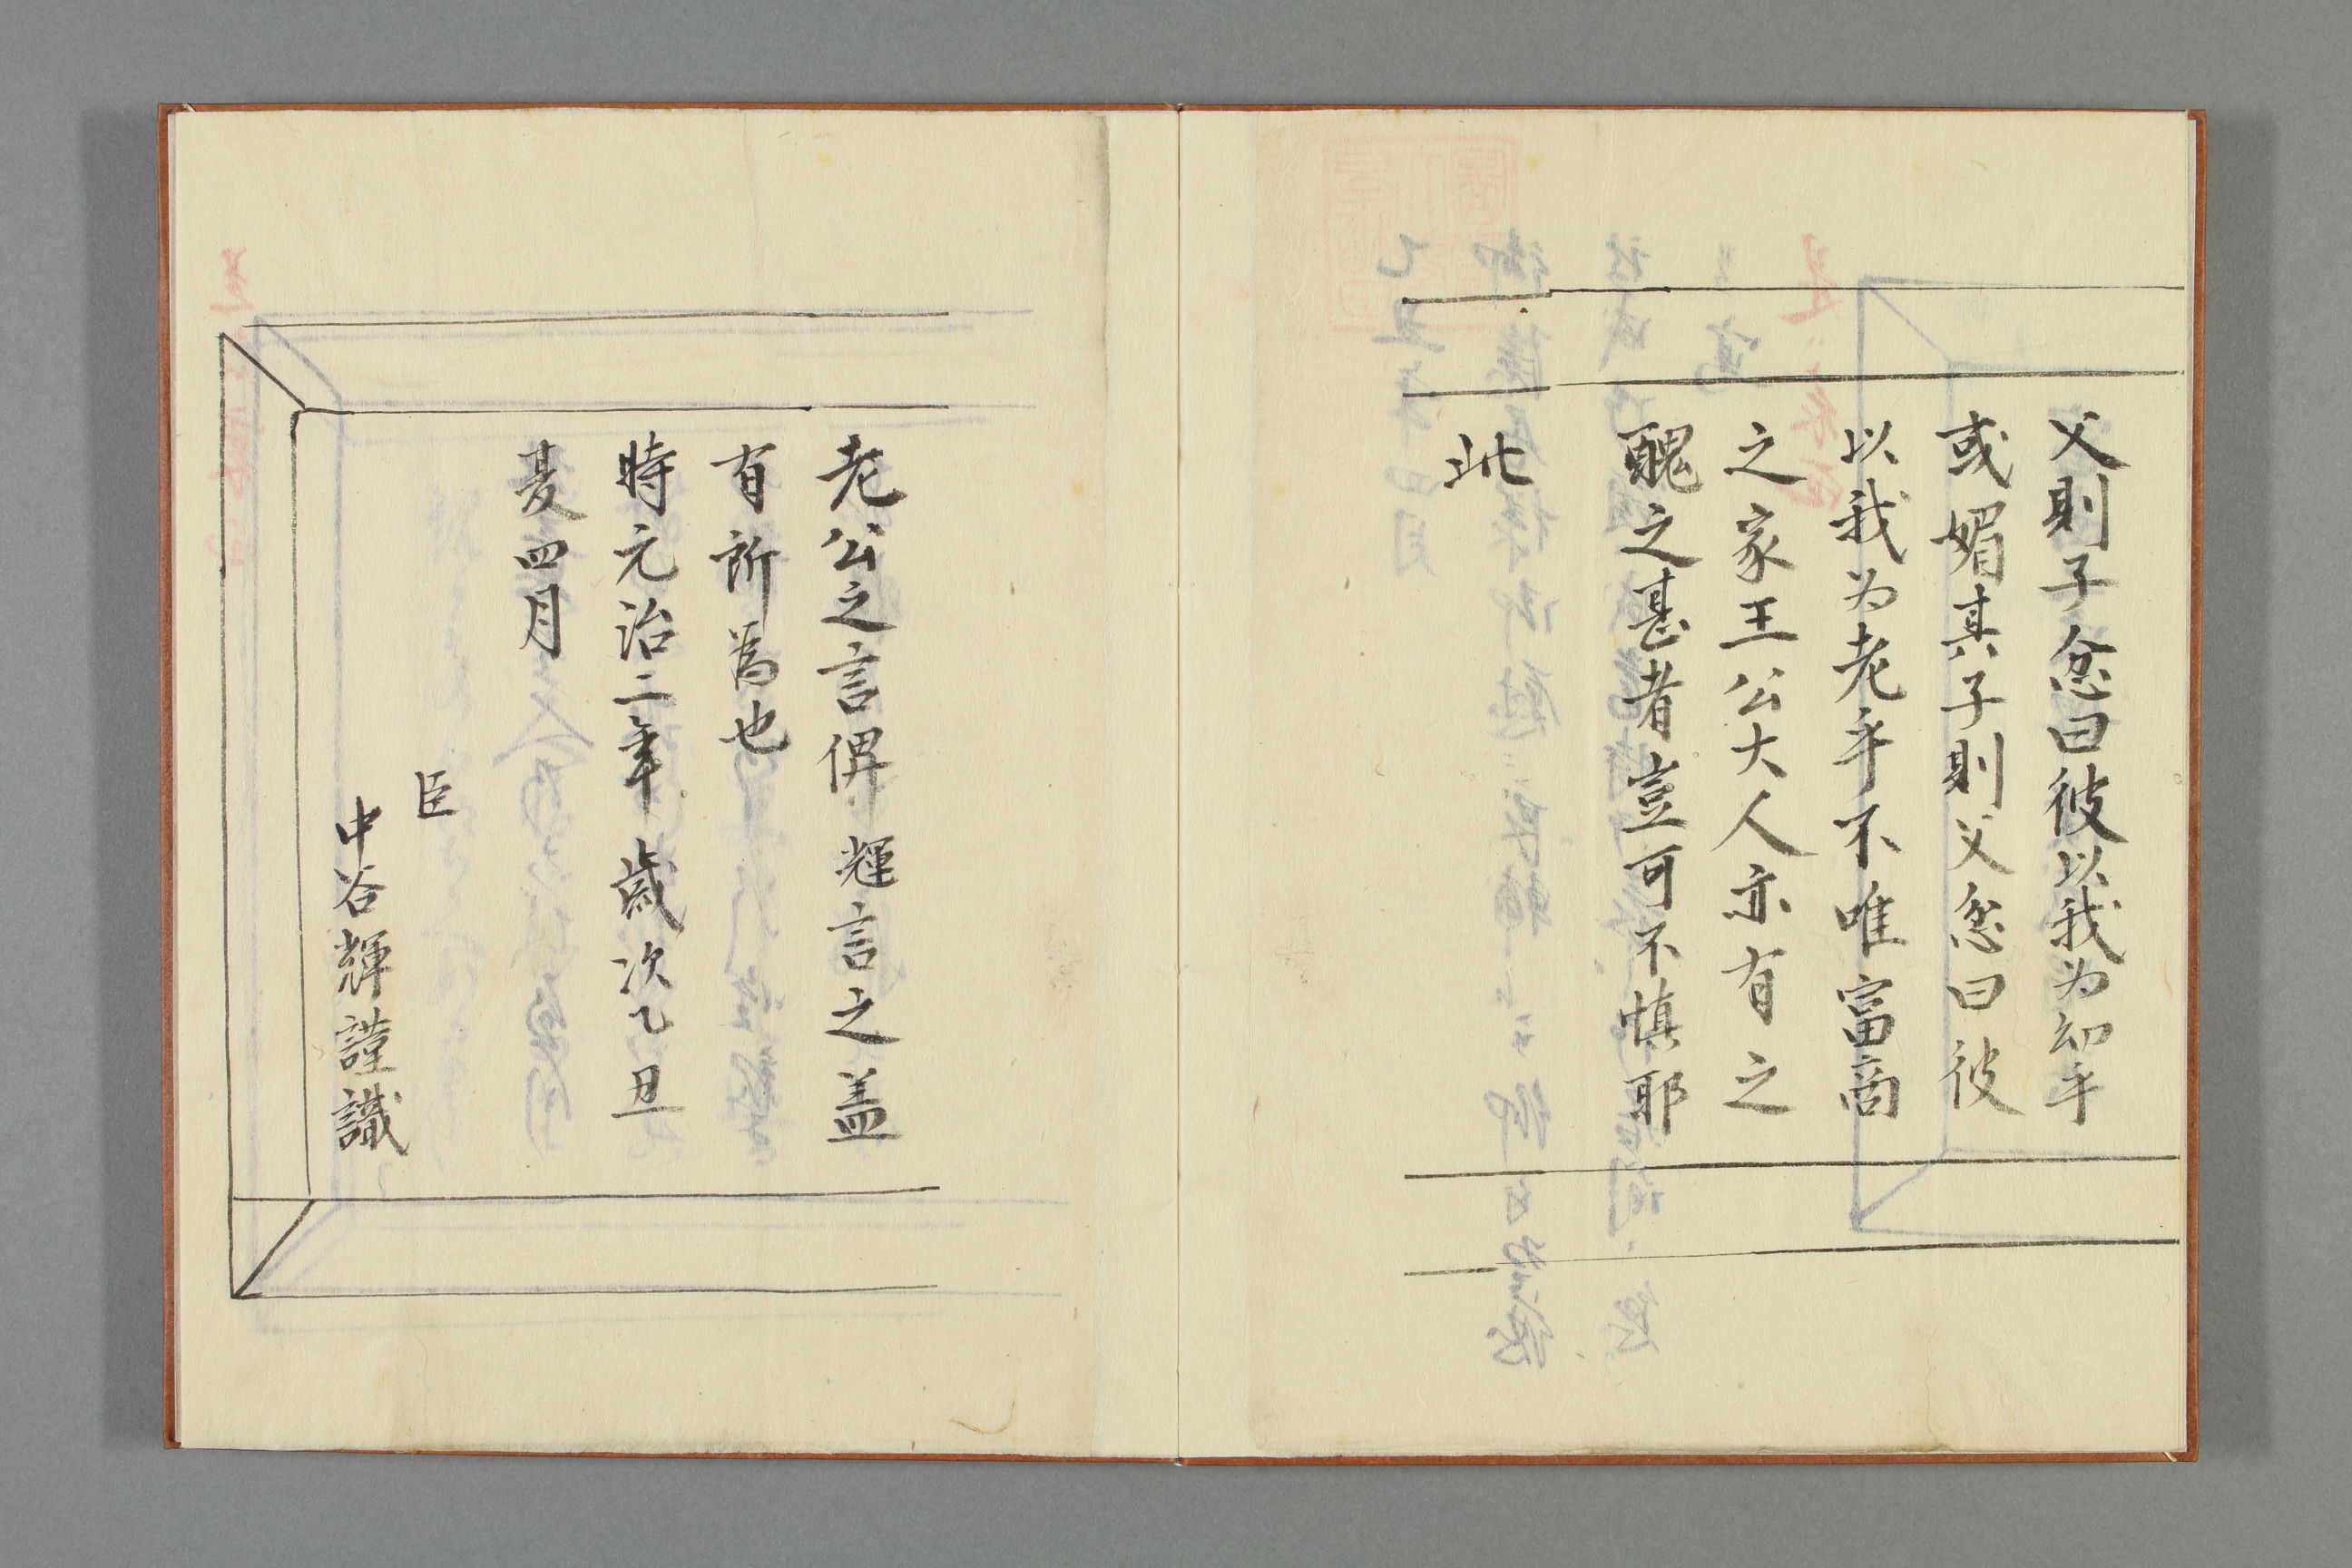 父則子忿曰彼以我为幼乎
或媚其子則父忿曰彼
以我为老乎不唯富商
之家王公大人亦有之
醜之甚者豈可不慎耶
此
老公之言俾輝言之盖
有所為也
時元治二年歳次乙丑
夏四月
臣
中谷輝謹識